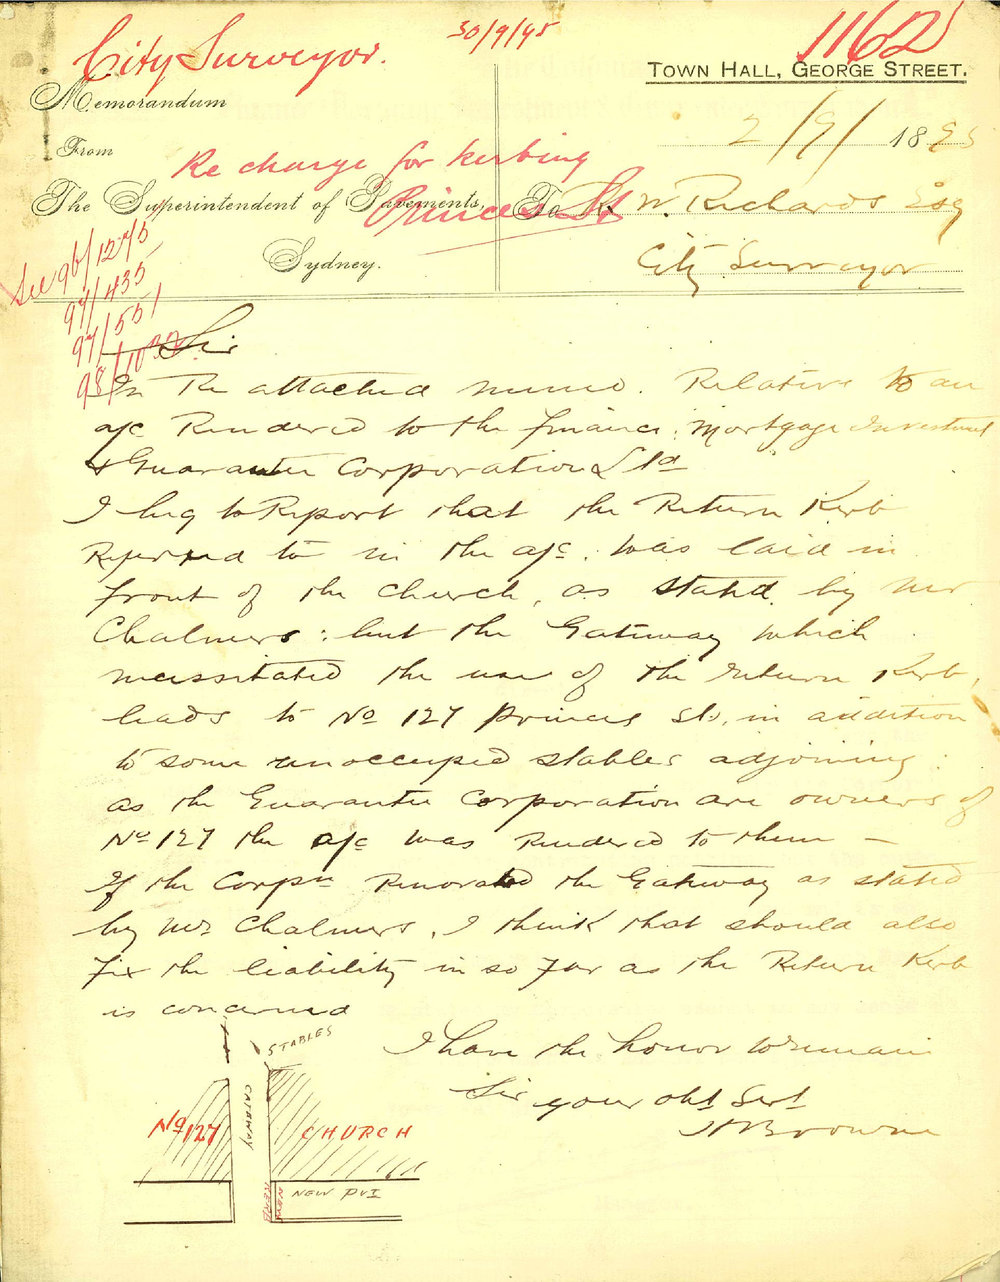 City Surveyor.
30/9/95
1162
Town Hall, George Street.
Memorandum
2/9/ 1895
From
Re charge for kerbing
The Superintendent of Pavements,
Princes St
To R. W. Richards Esq
Sydney.
City Surveyor
See 96/1275
97/435
97/551
98/1032
Sir
In Re attached memo. Relative to an
a/c Rendered to the Finance. Mortgage Investment
& Guarantee Corporation Ltd
I beg to Report that the Return Kerb
Referred to in the a/c. was laid in
front of the church, as stated by Mr
Chalmers: but the Gateway which
necessitated the use of the return Kerb,
leads to No 127 Princes St., in addition
to some unoccupied stables adjoining:
as the Guarantee Corporation are owners of
No 127 the a/c was Rendered to them —
If the Corpn Renovated the Gateway as stated
by Mr Chalmers, I think that should also
Fix the liability in so far as the Return Kerb
is concerned
I have the honor to remain
Sir
your obt Servt
Browne
STABLES
GATEWAY
No 127
CHURCH
NEW KERB
NEW PVT